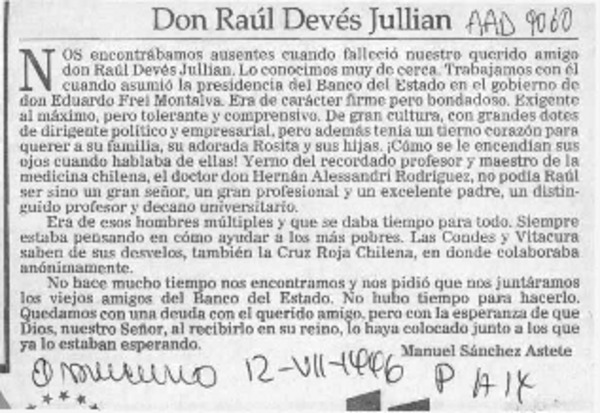 Don Raúl Devés Jullian AAD 9060
NOS encontrábamos ausentes cuando falleció nuestro querido amigo
don Raúl Devés Jullian. Lo conocimos muy de cerca. Trabajamos con él
cuando asumió la presidencia del Banco del Estado en el gobierno de
don Eduardo Frei Montalva. Era de carácter firme pero bondadoso. Exigente
al máximo, pero tolerante y comprensivo. De gran cultura, con grandes dotes
de dirigente político y empresarial, pero además tenía un tierno corazón para
querer a su familia, su adorada Rosita y sus hijas. ¡Cómo se le encendían sus
ojos cuando hablaba de ellas! Yerno del recordado profesor y maestro de la
medicina chilena, el doctor don Hernán Alessandri Rodríguez, no podía Raúl
ser sino un gran señor, un gran profesional y un excelente padre, un distin-
guido profesor y decano universitario.
Era de esos hombres múltiples y que se daba tiempo para todo. Siempre
estaba pensando en cómo ayudar a los más pobres. Las Condes y Vitacura
saben de sus desvelos, también la Cruz Roja Chilena, en donde colaboraba
anónimamente.
No hace mucho tiempo nos encontramos y nos pidió que nos juntáramos
los viejos amigos del Banco del Estado. No hubo tiempo para hacerlo.
Quedamos con una deuda con el querido amigo, pero con la esperanza de que
Dios, nuestro Señor, al recibirlo en su reino, lo haya colocado junto a los que
ya lo estaban esperando.
Manuel Sánchez Astete
12-VII-1996 P A1X